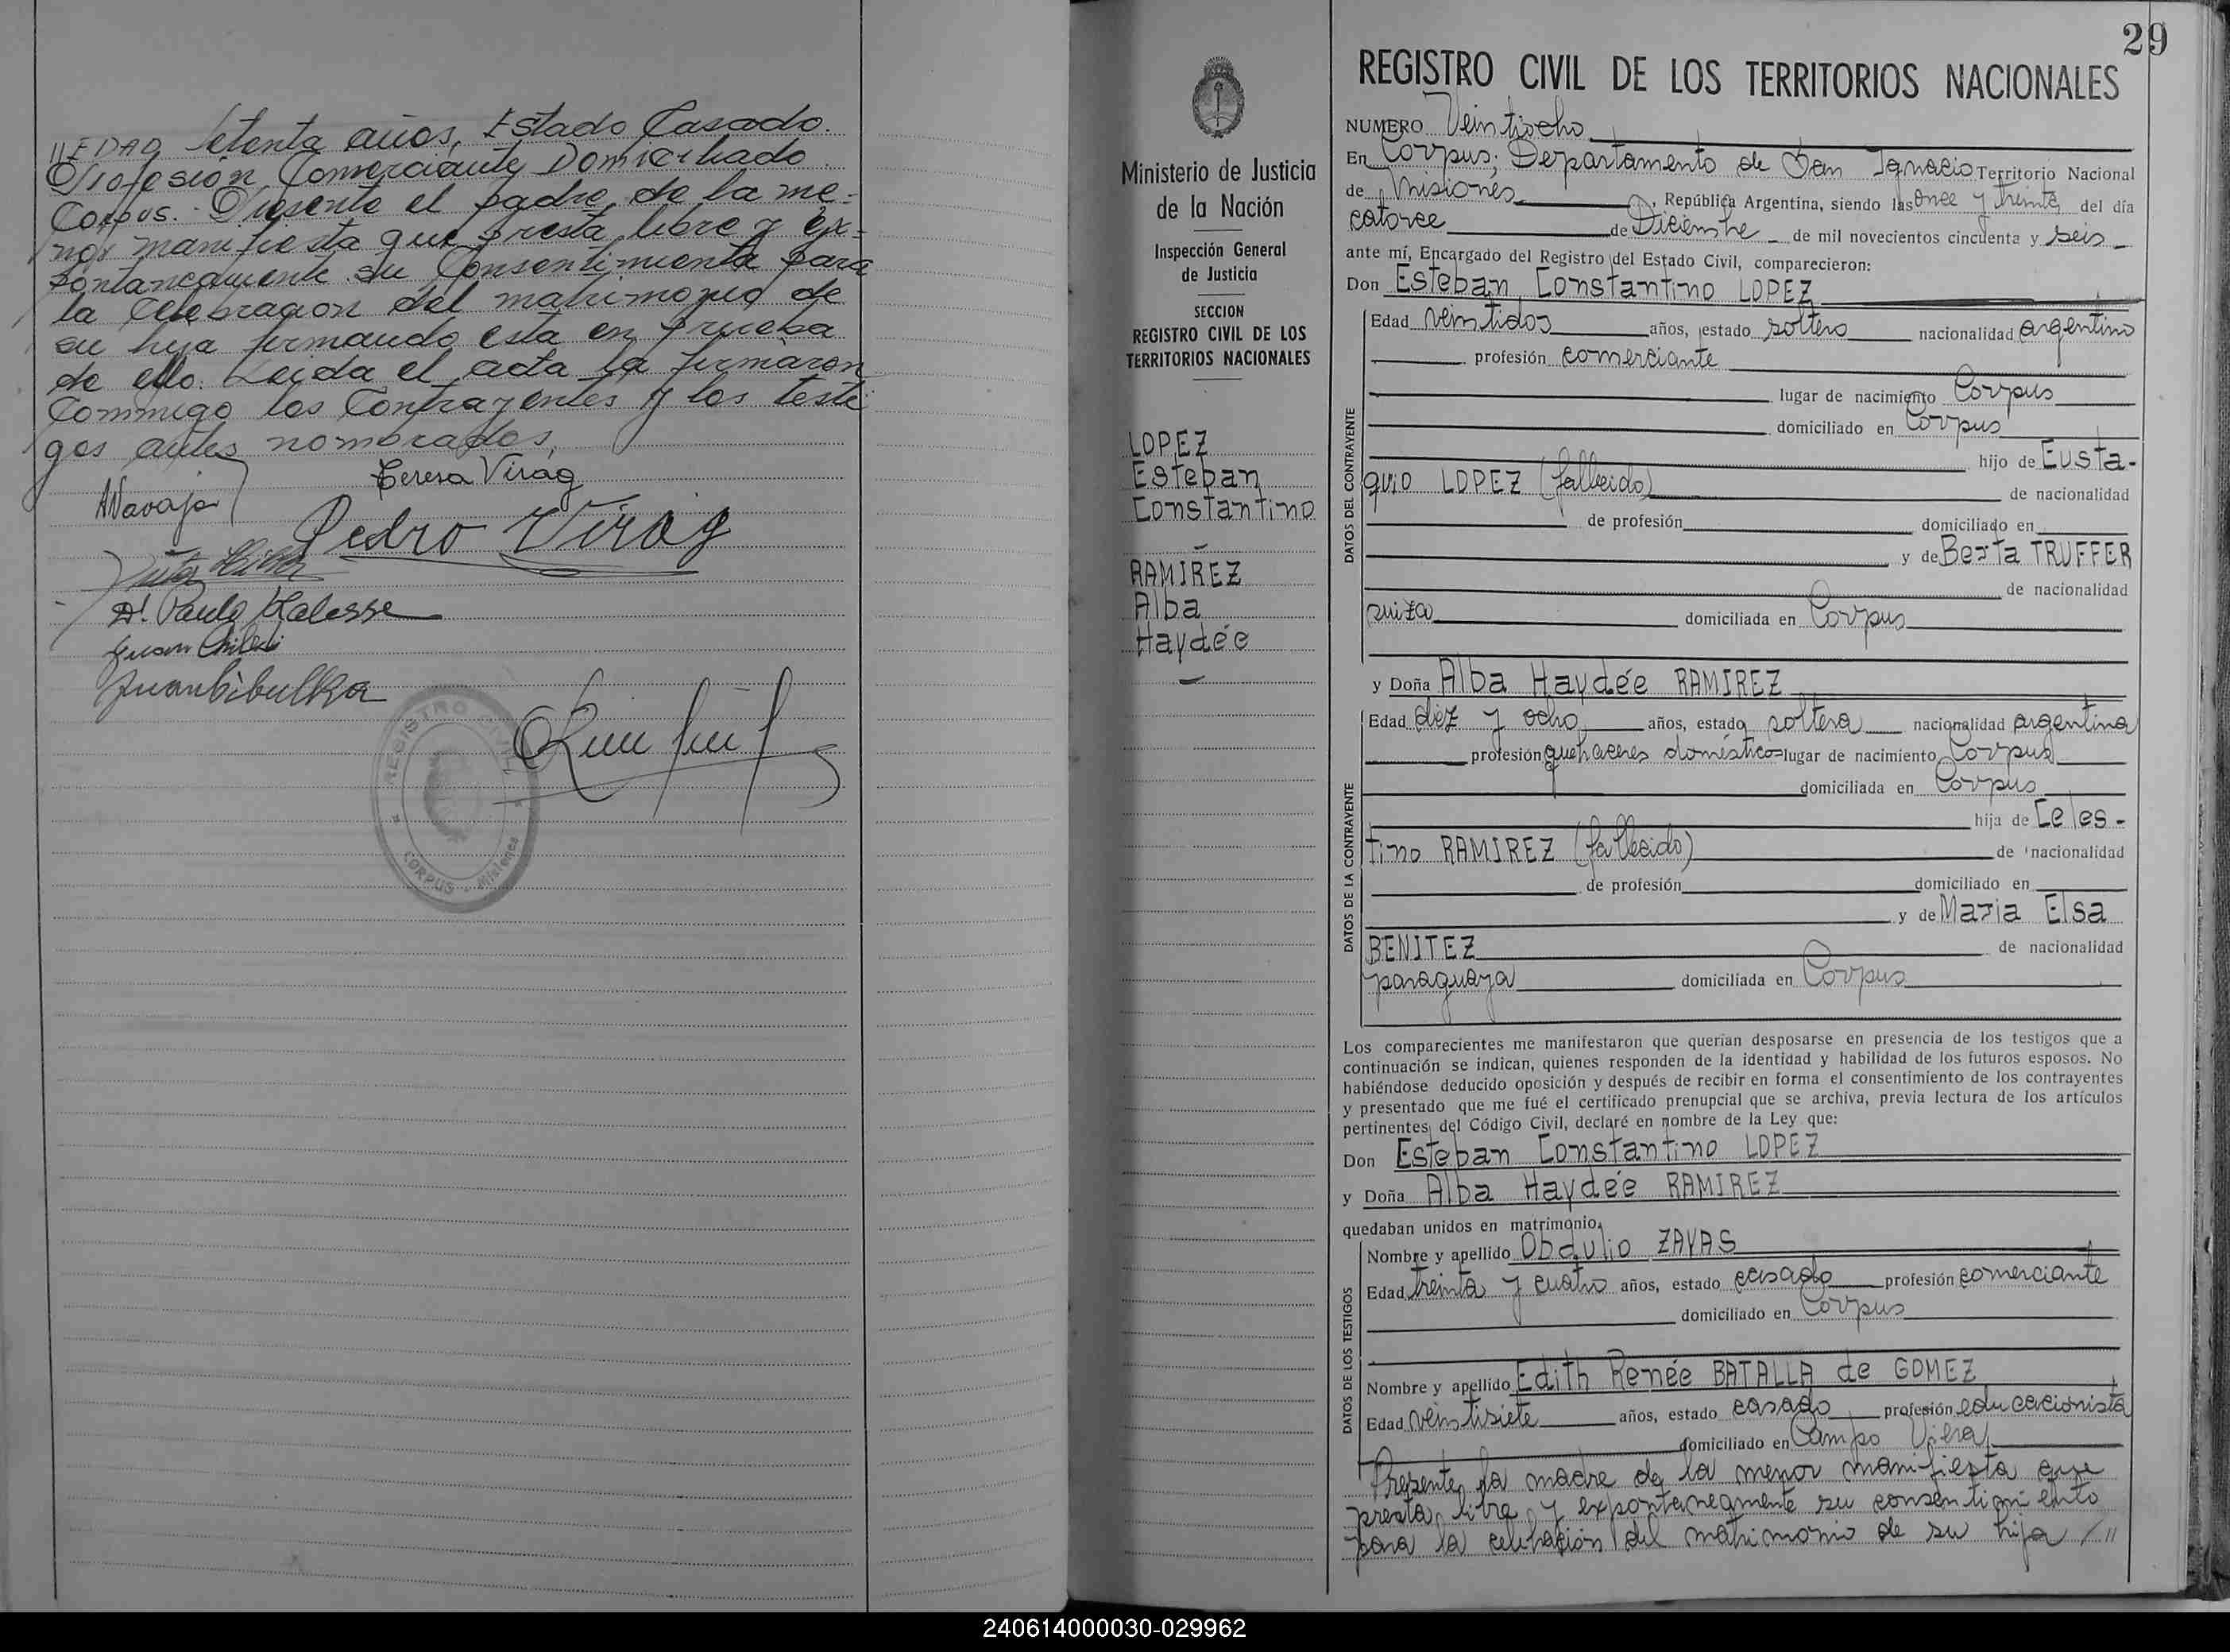 //EDAD Setenta años, Estado Casado.
Profesión Comerciante Domiciliado
Corpus. Presente el padre de la me-
nor manifiesta que presta libre y ex-
pontaneamente su Consentimiento para
la Celebracion del matrimonio de
su hija firmando esta en prueba
de ello. Leida el acta la firmaron
Conmigo los Contrayentes y los testi
gos antes nombrados,
Teresa Virag
Pedro Virag
REGISTRO CIVIL
CORPUS - Misiones
29
Ministerio de Justicia
de la Nación
Inspección General
de Justicia
SECCION
REGISTRO CIVIL DE LOS
TERRITORIOS NACIONALES
LOPEZ
Esteban
Constantino
-
RAMIREZ
Alba
Haydée
-
REGISTRO CIVIL DE LOS TERRITORIOS NACIONALES
NUMERO Veintiocho
En Corpus; Departamento de San Ignacio Territorio Nacional
de Misiones, República Argentina, siendo las once y treinta del día
catorce de Diciembre de mil novecientos cincuenta y seis
ante mí, Encargado del Registro del Estado Civil, comparecieron:
Don Esteban Constantino LOPEZ
DATOS DEL CONTRAYENTE
Edad veintidos años, estado soltero nacionalidad argentino
profesión comerciante
lugar de nacimiento Corpus
domiciliado en Corpus
hijo de Eusta-
quio LOPEZ (fallecido) de nacionalidad
de profesión domiciliado en
y de Berta TRUFFER
de nacionalidad
suiza domiciliada en Corpus
y Doña Alba Haydée RAMIREZ
DATOS DE LA CONTRAYENTE
Edad diez y ocho años, estado soltera nacionalidad argentina
profesión quehaceres domésticos lugar de nacimiento Corpus
domiciliada en Corpus
hija de Celes-
tino RAMIREZ (fallecido) de nacionalidad
de profesión domiciliado en
y de Maria Elsa
BENITEZ de nacionalidad
paraguaya domiciliada en Corpus
Los comparecientes me manifestaron que querían desposarse en presencia de los testigos que a
continuación se indican, quienes responden de la identidad y habilidad de los futuros esposos. No
habiéndose deducido oposición y después de recibir en forma el consentimiento de los contrayentes
y presentado que me fué el certificado prenupcial que se archiva, previa lectura de los artículos
pertinentes del Código Civil, declaré en nombre de la Ley que:
Don Esteban Constantino LOPEZ
y Doña Alba Haydée RAMIREZ
quedaban unidos en matrimonio.
DATOS DE LOS TESTIGOS
Nombre y apellido Obdulio ZAYAS
Edad treinta y cuatro años, estado casado profesión comerciante
domiciliado en Corpus
Nombre y apellido Edith Renée BATALLA de GOMEZ
Edad veintisiete años, estado casado profesión educacionista
domiciliado en Campo Viera
Presente la madre de la menor manifiesta que
presta libre y expontaneamente su consentimiento
para la celebración del matrimonio de su hija ///
240614000030-029962